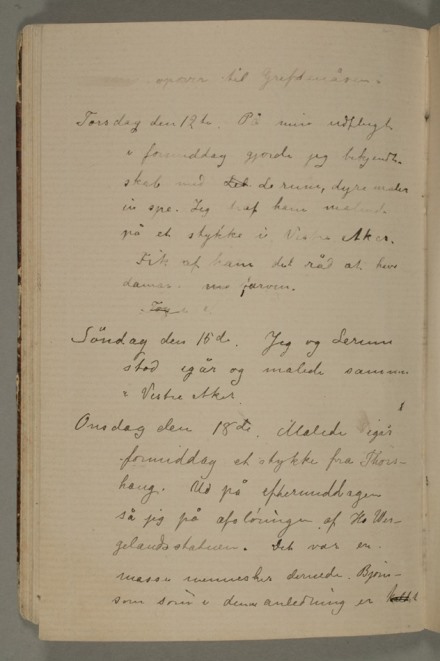 opover til Grefdenåsen.
Torsdag den 12te. På min udflugt
i formiddag gjorde jeg bekjendt-
skab med de rum, dyre maler
in spe. Jeg traf ham malende
på et stykke i Vestre Aker.
Fik af ham det råd at have
farven.
Söndag den 15de. Jeg og Serum
stod igår og malede sammen
i Vestre Aker.
Onsdag den 18de. Malede igår
formiddag et stykke fra Thors-
haug. Ud på eftermiddagen
så jeg på afslöringen af H. Wer-
gelandsstatuen. Det var en
masse mennesker dernede. Björn-
son som i denne anledning er